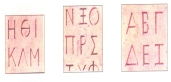 ΗΘΙ
ΚΛΜ
ΝΞΟ
ΠΡΣ
ΤΥΦ
ΑΒΓ
ΔΕΙ